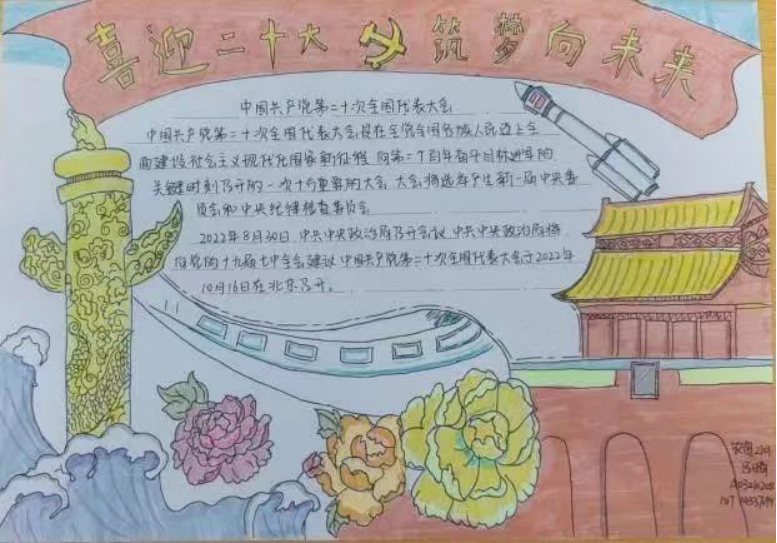 喜迎二十大 筑梦向未来
中国共产党第二十次全国代表大会
中国共产党第二十次全国代表大会,是在全党全国各族人民迈上全
面建设社会主义现代化国家新征程,向第二个百年奋斗目标进军的
关键时刻召开的一次十分重要的大会,大会将选举产生新一届中央委
员会和中央纪律检查委员会
2022年8月30日,中共中央政治局召开会议,中共中央政治局将
向党的十九届七中全会建议,中国共产党第二十次全国代表大会于2022年
10月16日在北京召开。